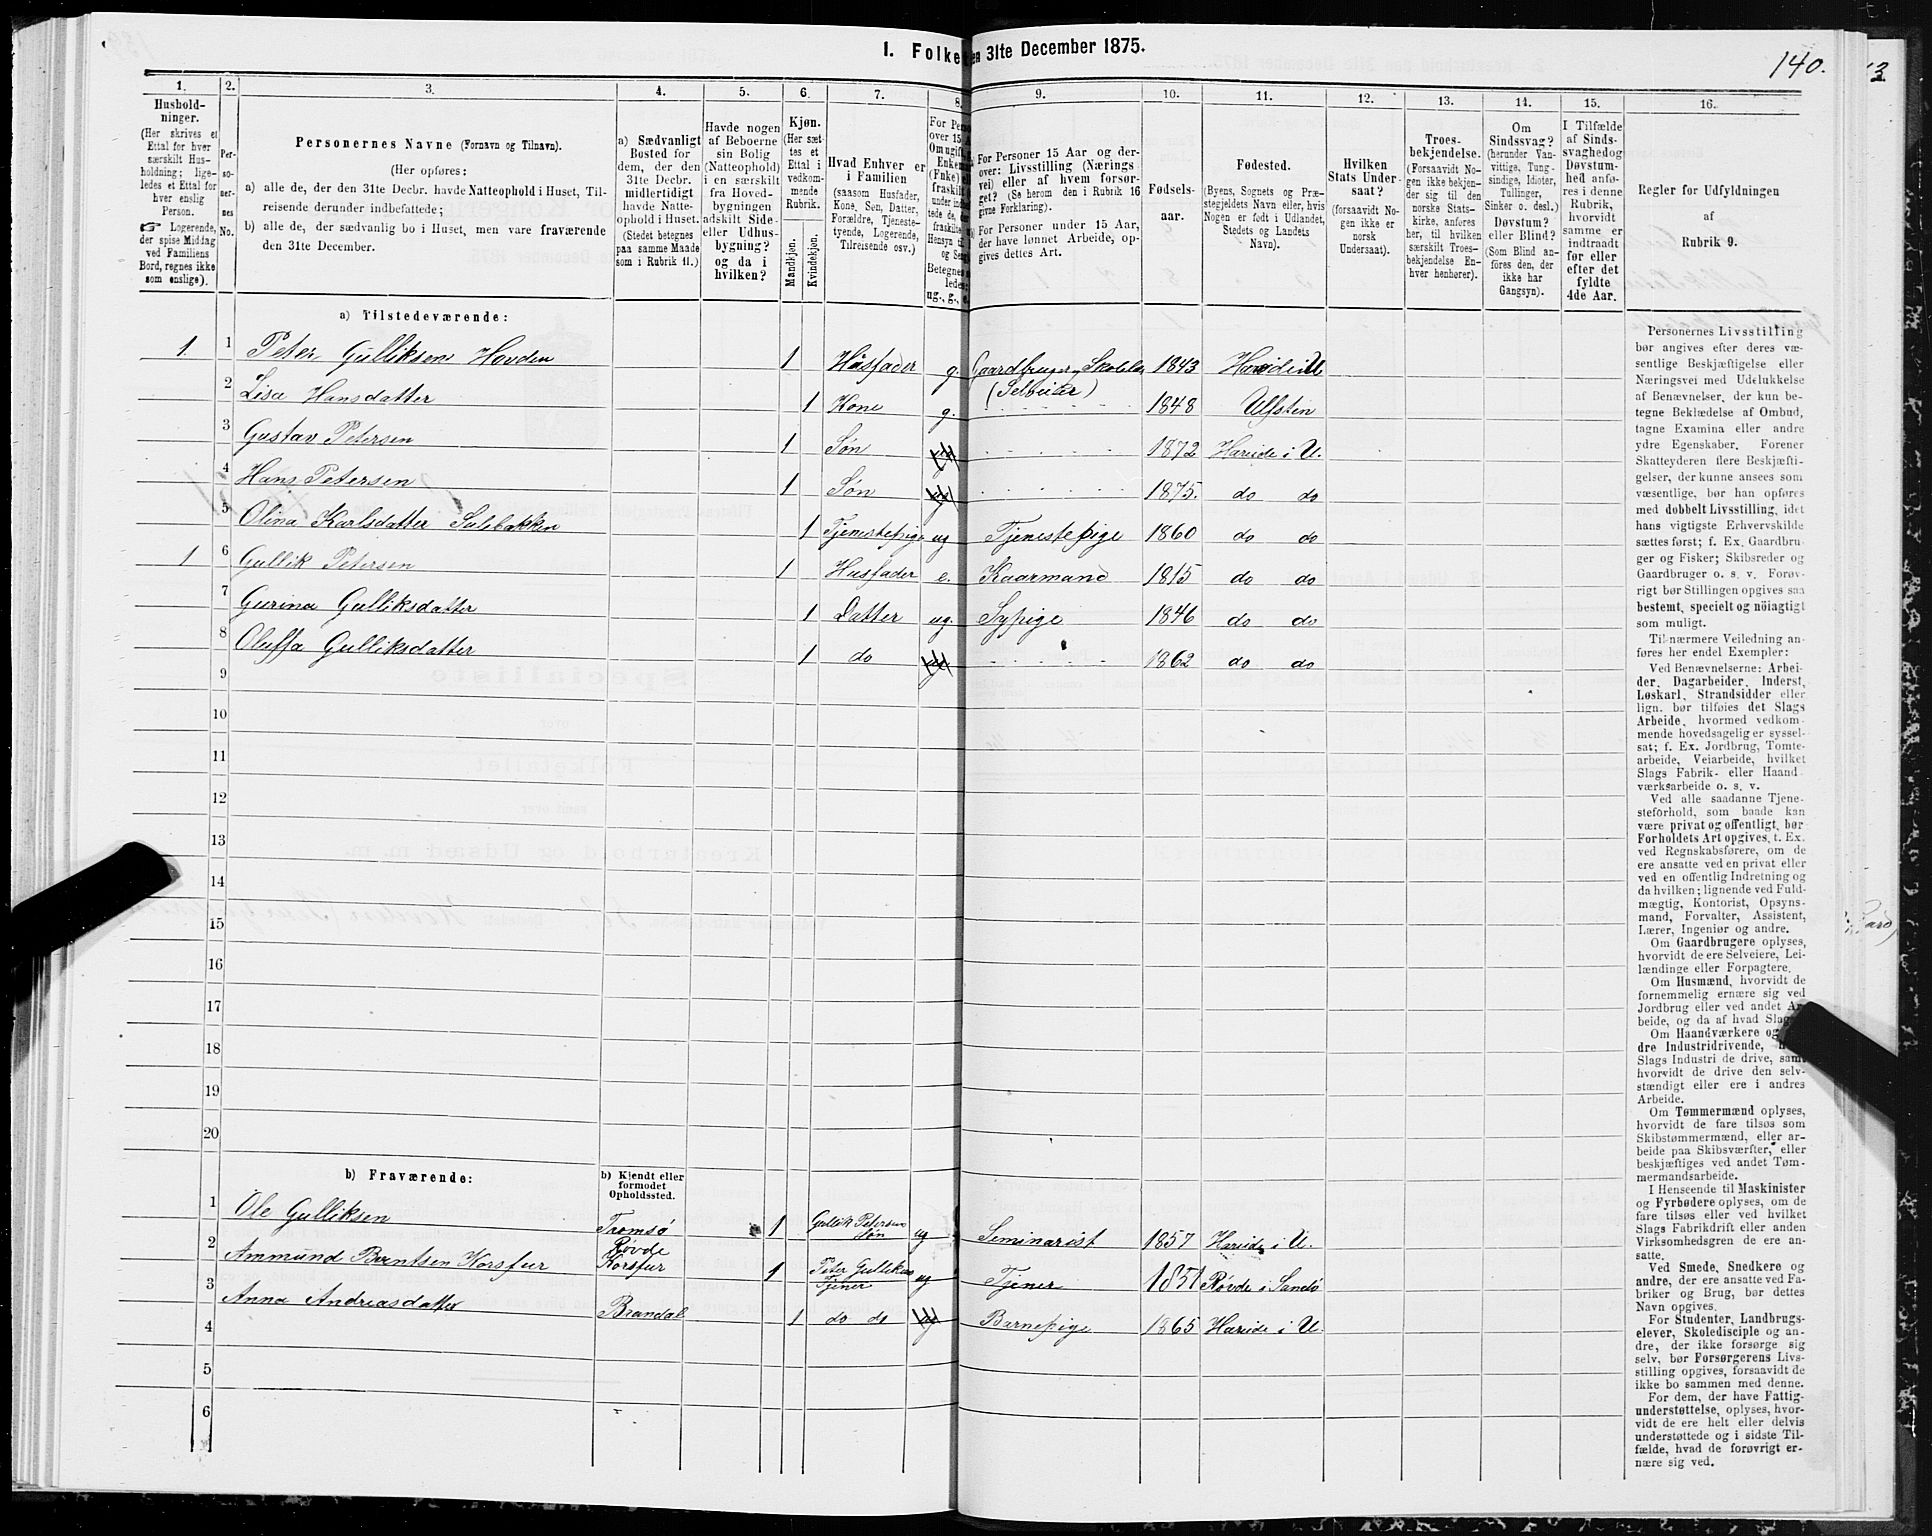 1. Folke en 31te December 1875.
140.
1. 2. 3. 4. 5. 6. 7. 8. 9. 10. 11. 12. 13. 14. 15. 16.
Hushold-
ninger.
(Her skrives et
Ettal for hver
særskilt Hus-
holdning; lige-
ledes et Ettal for
hver enslig
Person.
☞ Logerende,
der spise Middag
ved Familiens
Bord, regnes ikke
som enslige).
Per-
so-
ner-
nes
No.
Personernes Navne (Fornavn og Tilnavn).
(Her opføres:
a) alle de, der den 31te Decbr. havde Natteophold i Huset, Til-
reisende derunder indbefattede;
b) alle de, der sædvanlig bo i Huset, men vare fraværende
den 31te December.
a) Sædvanligt
Bosted for
dem, der den
31te Decbr.
midlertidigt
havde Natte-
ophold i Huset.
(Stedet betegnes
paa samme Maade
som i Rubrik 11.)
Havde nogen
af Beboerne
sin Bolig
(Natteophold)
i en særskilt
fra Hoved-
bygningen
adskilt Side-
eller Udhus-
bygning?
og da i
hvilken?
Kjøn.
(Her sæt-
tes et
Ettal i
vedkom-
mende
Rubrik.
Mandkjøn.
Kvindekjøn.
Hvad Enhver er
i Familien
(saasom Husfader,
Kone, Søn, Datter,
Forældre, Tjeneste-
tyende, Logerende,
Tilreisende osv.)
For Pers
over 15
Om ugift,
Enkem
(Enke) el
fraskilt
ug., g., e.
For Personer 15 Aar og der-
over: Livsstilling (Nærings
vei) eller af hvem forsør-
get? (Se herom den i Rubrik 16
givne Forklaring).
For Personer under 15 Aar,
der have lønnet Arbeide, op-
gives dettes Art.
Fødsels-
aar.
Fødested.
(Byens, Sognets og Præ-
stegjeldets Navn eller, hvis
Nogen er født i Udlandet,
Stedets og Landets
Navn).
Hvilken
Stats Under-
saat?
(forsaavidt No-
gen ikke er
norsk
Undersaat).
Troes-
bekjendelse.
(Forsaavidt No-
gen ikke bekjen-
der sig til den
norske Stats-
kirke, anføres
her, til hvilken
særskilt Troes-
bekjendelse En-
hver henhører).
Om
Sindssvag?
(herunder Van-
vittige, Tung-
sindige, Idioter,
Tullinger,
Sinker o. desl.)
Døvstum?
eller Blind?
(Som Blind an-
føres den, der
ikke har
Gangsyn).
I Tilfælde
af Sinds-
svaghed og
Døvstum-
hed anfø-
res i denne
Rubrik,
hvorvidt
samme er
indtraadt
før eller
efter det
fyldte
4de Aar.
Regler for Udfyldningen
af
Rubrik 9.
a) Tilstedeværende:
1 1 Peter Gulliksen Hovden 1 Husfader g. Gaardbruger, Skolelær (Selveier) 1843 Hareide i U
2 Lisa Hansdatter 1 Kone g. 1848 Ulfsten
3 Gustav Petersen 1 Søn ug 1872 Hareide i U.
4 Hans Petersen 1 Søn ug 1875. do do
5 Olina Karlsdatter Sulebakken 1 Tjenestepige ug Tjenestepige 1860 do do
1 6 Gullik Petersen 1 Husfader e. Kaarmand 1815 do do
7 Gurina Gulliksdatter 1 Datter ug. Sypige 1846 do do
8 Oluffa Gulliksdatter 1 do ug. 1862 do do
9
10
11
12
13
14
15
16
17
18
19
20
b) Fraværende:
b) Kjendt eller
formodet
Opholdssted.
1 Ole Gulliksen Tromsø 1 Gullik Petersens Søn ug Seminarist 1857 Hareide i U.
2 Ammund Berntsen Korsfur Røvde Korsfur 1 Peter Gulliksens Tjener ug Tjener 1851 Røvde i Sandø
3 Anna Andreasdatter Brandal 1 do do ug Barnepige 1865 Hareide i U.
4
5
6
Personernes Livsstilling
bør angives efter deres væ-
sentlige Beskjæftigelse eller
Næringsvei med Udelukkelse
af Benævnelser, der kun be-
tegne Beklædelse af Ombud,
tagne Examina eller andre
ydre Egenskaber. Forener
Skatteyderen flere Beskjæfti-
gelser, der kunne ansees som
væsentlige, bør han opføres
med dobbelt Livsstilling, idet
hans vigtigste Erhvervskilde
sættes først; f. Ex. Gaardbru-
ger og Fisker; Skibsreder og
Gaardbruger o. s. v. Forøv-
rigt bør Stillingen opgives saa
bestemt, specielt og nöiagtigt
som muligt.
Til nærmere Veiledning an-
føres her endel Exempler:
Ved Benævnelserne: Arbei-
der, Dagarbeider, Inderst,
Løskarl, Strandsidder eller
lign. bør tilføies det Slags
Arbeide, hvormed vedkom-
mende hovedsagelig er syssel-
sat; f. Ex. Jordbrug, Tomte-
arbeide, Veiarbeide, hvilket
Slags Fabrik- eller Haand-
værksarbeide o. s. v.
Ved alle saadanne Tjene-
steforhold, som baade kan
være privat og offentligt, bør
Forholdets Art opgives, t. Ex.
ved Regnskabsførere, om de
ere ansatte ved en privat eller
ved en offentlig Indretning og
da hvilken; lignende ved Fuld-
mægtig, Kontorist, Opsyns-
mand, Forvalter, Assistent,
Lærer, Ingeniør og andre.
Om Gaardbrugere oplyses,
hvorvidt de ere Selveiere, Lei-
lændinge eller Forpagtere.
Om Husmænd, hvorvidt de
fornemmelig ernære sig ved
Jordbrug eller ved andet Ar-
beide, og da af hvad Slags
Om Haandværkere og
dre Industridrivende,
Slags Industri de drive, samt
hvorvidt de drive den selv-
stændigt eller ere i andres
Arbeide.
Om Tømmermænd oplyses,
hvorvidt de fare tilsøs som
Skibstømmermænd, eller ar-
beide paa Skibsværfter, eller
beskjæftiges ved andet Tøm-
mermandsarbeide.
I Henseende til Maskinister
og Fyrbødere oplyses, om de
fare tilsøs eller ved hvilket
Slags Fabrikdrift eller anden
Virksomhedsgren de ere an-
satte.
Ved Smede, Snedkere og
andre, der ere ansatte ved Fa-
briker og Brug, bør dettes
Navn opgives.
For Studenter, Landbrugs-
elever, Skoledisciple og an-
dre, der ikke forsørge sig
selv, bør Forsørgerens Livs-
stilling opgives, forsaavidt de
ikke bo sammen med denne.
For dem, der have Fattig-
understøttelse, oplyses, hvor-
vidt de ere helt eller delvis
understøttede og i sidste Til-
fælde, hvad de forøvrigt er-
nære sig ved.